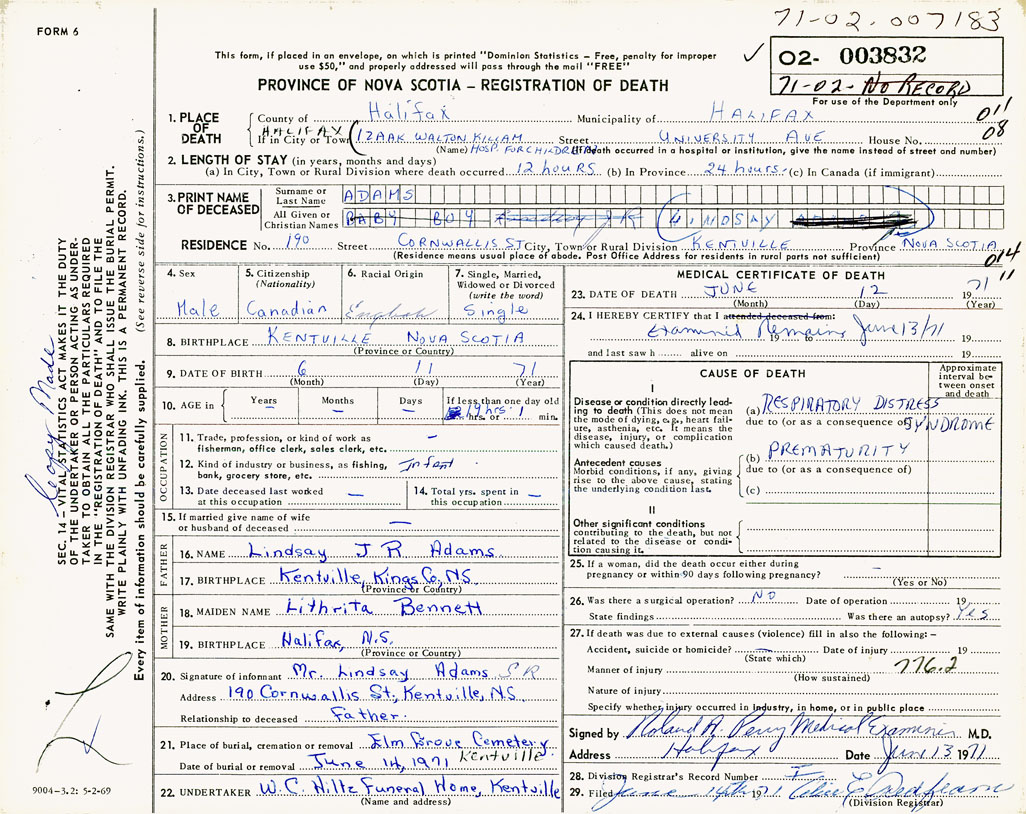 71-02-007183
FORM 6
This form, if placed in an envelope, on which is printed "Dominion Statistics – Free, penalty for improper
use $50," and properly addressed will pass through the mail "FREE"
02- 003832
71-02-No RECORD
For use of the Department only
PROVINCE OF NOVA SCOTIA – REGISTRATION OF DEATH
011
08
1. PLACE OF DEATH
County of Halifax Municipality of HALIFAX
HALIFAX
If in City or Town IZAAK WALTON KILLAM Street UNIVERSITY AVE House No.
(Name) HOSP. FOR CHILDREN death occurred in a hospital or institution, give the name instead of street and number)
2. LENGTH OF STAY (in years, months and days)
(a) In City, Town or Rural Division where death occurred 12 hours (b) In Province 24 hours. (c) In Canada (if immigrant)
3. PRINT NAME OF DECEASED
Surname or Last Name ADAMS
All Given or Christian Names BABY BOY Lindsay J R LINDSAY
RESIDENCE No. 190 Street CORNWALLIS ST City, Town or Rural Division KENTVILLE Province NOVA SCOTIA
(Residence means usual place of abode. Post Office Address for residents in rural parts not sufficient)
014
11
4. Sex
Male
5. Citizenship (Nationality)
Canadian
6. Racial Origin
English
7. Single, Married, Widowed or Divorced (write the word)
Single
8. BIRTHPLACE KENTVILLE NOVA SCOTIA
(Province or Country)
9. DATE OF BIRTH 6 11 71
(Month) (Day) (Year)
10. AGE in Years – Months – Days – If less than one day old
19 hrs. or 1 min.
OCCUPATION
11. Trade, profession, or kind of work as –
fisherman, office clerk, sales clerk, etc.
12. Kind of industry or business, as fishing, Infant
bank, grocery store, etc.
13. Date deceased last worked at this occupation –
14. Total yrs. spent in this occupation –
15. If married give name of wife
or husband of deceased –
FATHER
16. NAME Lindsay J R Adams
17. BIRTHPLACE Kentville, Kings Co, NS.
(Province or Country)
MOTHER
18. MAIDEN NAME Lithrita Bennett
19. BIRTHPLACE Halifax, N.S.
(Province or Country)
20. Signature of informant Mr. Lindsay Adams SR
Address 190 Cornwallis St, Kentville, NS.
Relationship to deceased Father.
21. Place of burial, cremation or removal Elm Grove Cemetery
Date of burial or removal June 14, 1971 Kentville
22. UNDERTAKER W.C. Hiltz Funeral Home, Kentville
(Name and address)
MEDICAL CERTIFICATE OF DEATH
23. DATE OF DEATH JUNE 12 1971
(Month) (Day) (Year)
24. I HEREBY CERTIFY that I attended deceased from:
Examined Remains June 13/71
19 to 19
and last saw h alive on 19
CAUSE OF DEATH
Approximate interval between onset and death
I
Disease or condition directly leading to death (This does not mean the mode of dying, e.g., heart failure, asthenia, etc. It means the disease, injury, or complication which caused death.)
(a) RESPIRATORY DISTRESS
due to (or as a consequence of) SYNDROME
Antecedent causes
Morbid conditions, if any, giving rise to the above cause, stating the underlying condition last.
(b) PREMATURITY
due to (or as a consequence of)
(c)
II
Other significant conditions
contributing to the death, but not related to the disease or condition causing it.
25. If a woman, did the death occur either during
pregnancy or within 90 days following pregnancy? –
(Yes or No)
26. Was there a surgical operation? NO Date of operation 19
State findings Was there an autopsy? Yes
27. If death was due to external causes (violence) fill in also the following: –
Accident, suicide or homicide? – Date of injury 19
(State which)
Manner of injury 776.2
(How sustained)
Nature of injury
Specify whether injury occurred in industry, in home, or in public place
Signed by Roland A. Perry Medical Examiner M.D.
Address Halifax Date Jun 13 1971
28. Division Registrar's Record Number
29. Filed June 14th 1971
(Division Registrar)
Copy Made
SEC. 14 – VITAL STATISTICS ACT MAKES IT THE DUTY
OF THE UNDERTAKER OR PERSON ACTING AS UNDER-
TAKER TO OBTAIN ALL THE PARTICULARS REQUIRED
IN THE "REGISTRATION OF DEATH" AND TO FILE THE
SAME WITH THE DIVISION REGISTRAR WHO SHALL ISSUE THE BURIAL PERMIT.
WRITE PLAINLY WITH UNFADING INK. THIS IS A PERMANENT RECORD.
Every item of information should be carefully supplied. (See reverse side for instructions.)
9004-3.2: 5-2-69